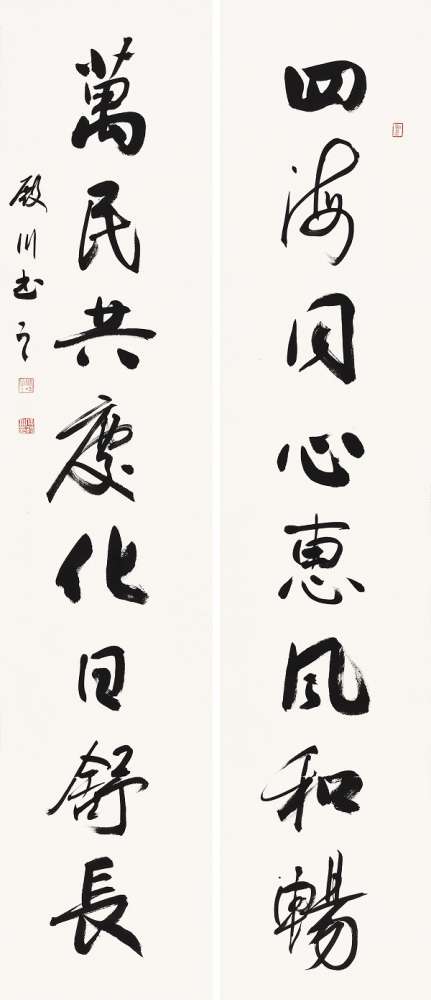 四海同心惠风和暢
萬民共慶化日舒長
殿川书之